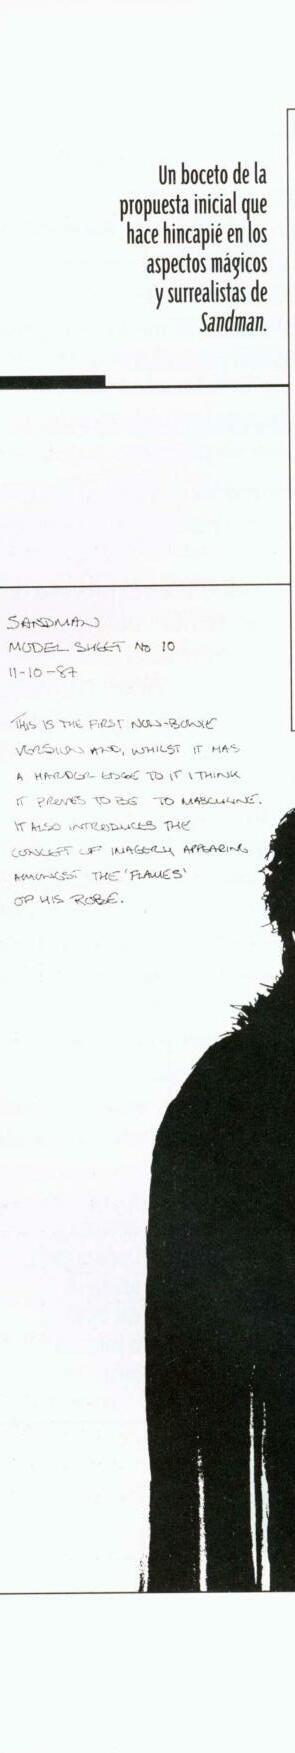 Un boceto de la
propuesta inicial que
hace hincapié en los
aspectos mágicos
y surrealistas de
Sandman.
SANDMAN
MODEL SHEET No 10
11-10-87
THIS IS THE FIRST NON-BOWIE
VERSION AND, WHILST IT HAS
A HARDER EDGE TO IT I THINK
IT PROVES TO BE TO MASCULINE.
IT ALSO INTRODUCES THE
CONCEPT OF IMAGERY APPEARING
AMONGST THE 'FLAMES'
OF HIS ROBE.